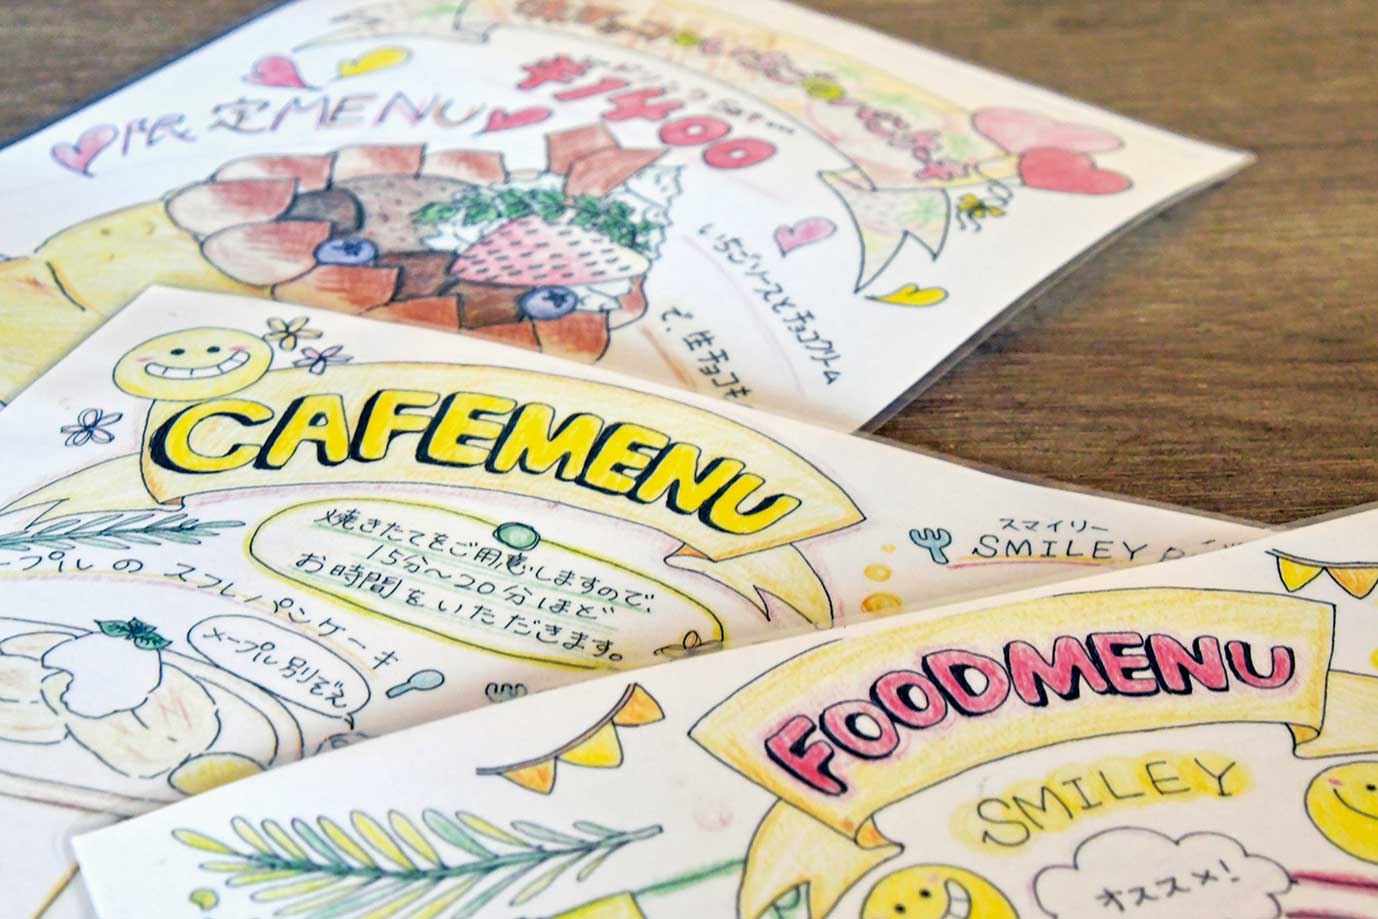 ¥1400
限定MENU
いちごソースとチョコクリーム
で、生チョコキ
CAFEMENU
焼きたてをご用意しますので、
15分~20分ほど
お時間をいただきます。
プルの スフレパンケーキ
メープル別ぞえ
スマイリー
SMILEY
FOODMENU
SMILEY
オススメ!